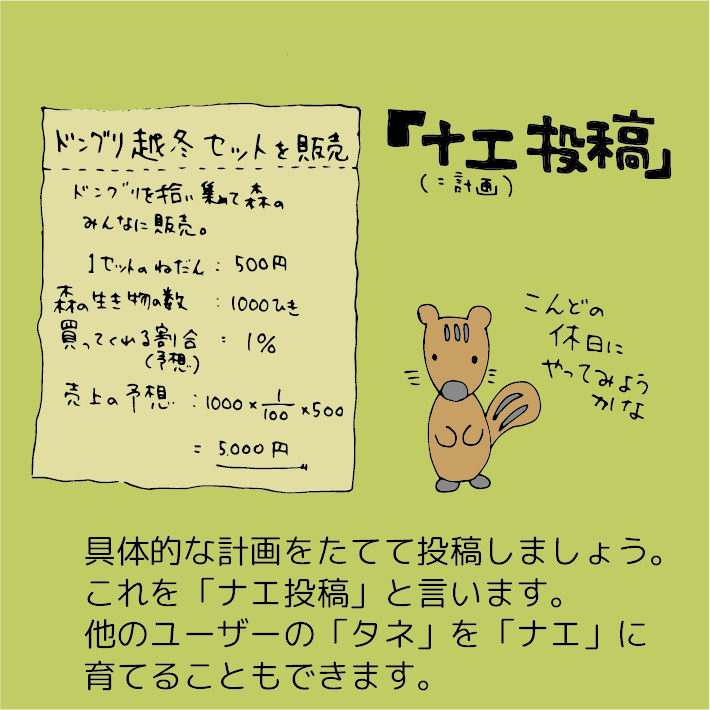 ドングリ越冬セットを販売
ドングリを拾い集めて森の
みんなに販売。
1セットのねだん：500円
森の生き物の数：1000ひき
買ってくれる割合：1%
(予想)
売上の予想：1000×1/100×500
=5.000円
『ナエ投稿』
(=計画)
こんどの
休日に
やってみよう
かな
具体的な計画をたてて投稿しましょう。
これを「ナエ投稿」と言います。
他のユーザーの「タネ」を「ナエ」に
育てることもできます。